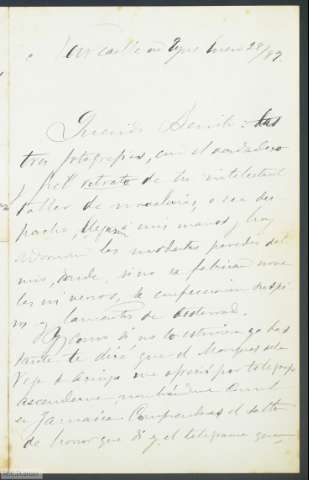 Newcastle on Tyne Enero 28/89.
Querido Benito: las
tres fotografias, con el verdadero
y fiel retrato de tu intelectual
taller de novelario, o sea des-
pacho, llegaron a mis manos y hoy
adornan las modestas paredes del
mio, donde, si no se fabrican nove-
las ni versos, se confeccionan despa-
chos y
Y como si no lo estuviera ya bas-
tante te diré que el Marques de la
Vega de Armijo me ofreció por telegrafo
ascenderme, nombrandome Consul
en Jamaica. Comprenderas el salto
de honor que di y el telegrama que